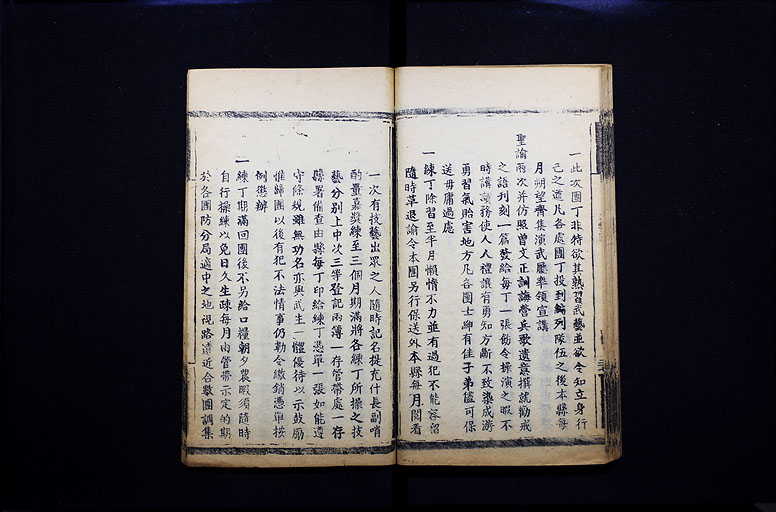 一此次團丁非特欲其熟習武藝並欲令知立身行
己之道凡各處團丁投到編列隊伍之後本縣每
月朔望齊集演武廳率領宣講
聖諭兩次并仿照曾文正訓誨營兵歌遺意撰就勸戒
之語刋刻一篇發給每丁一張飭令操演之暇不
時講讀務使人人禮讓有勇知方斷不致染成游
勇習氣貽害地方凡各團士紳有佳子弟儘可保
送毋庸過慮
一練丁除習至半月懶惰不力並有過犯不能容留
隨時革退諭令本團另行保送外本縣每月閱看
一次有技藝出眾之人隨時記名提充什長副哨
酌量嘉獎練至三個月期滿將各練丁所操之技
藝分别上中次三等登記兩簿一存管帶處一存
縣署備查由縣每丁印給練丁憑單一張如能遵
守條規雖無功名亦與武生一體優待以示鼓勵
惟歸團以後有犯不法情事仍勒令繳銷憑單按
例懲辦
一練丁期滿回團後不另給口糧朝夕農暇須隨時
自行操練以免日久生疎每月由管帶示定的期
於各團防分局適中之地視路遠近合數團調集